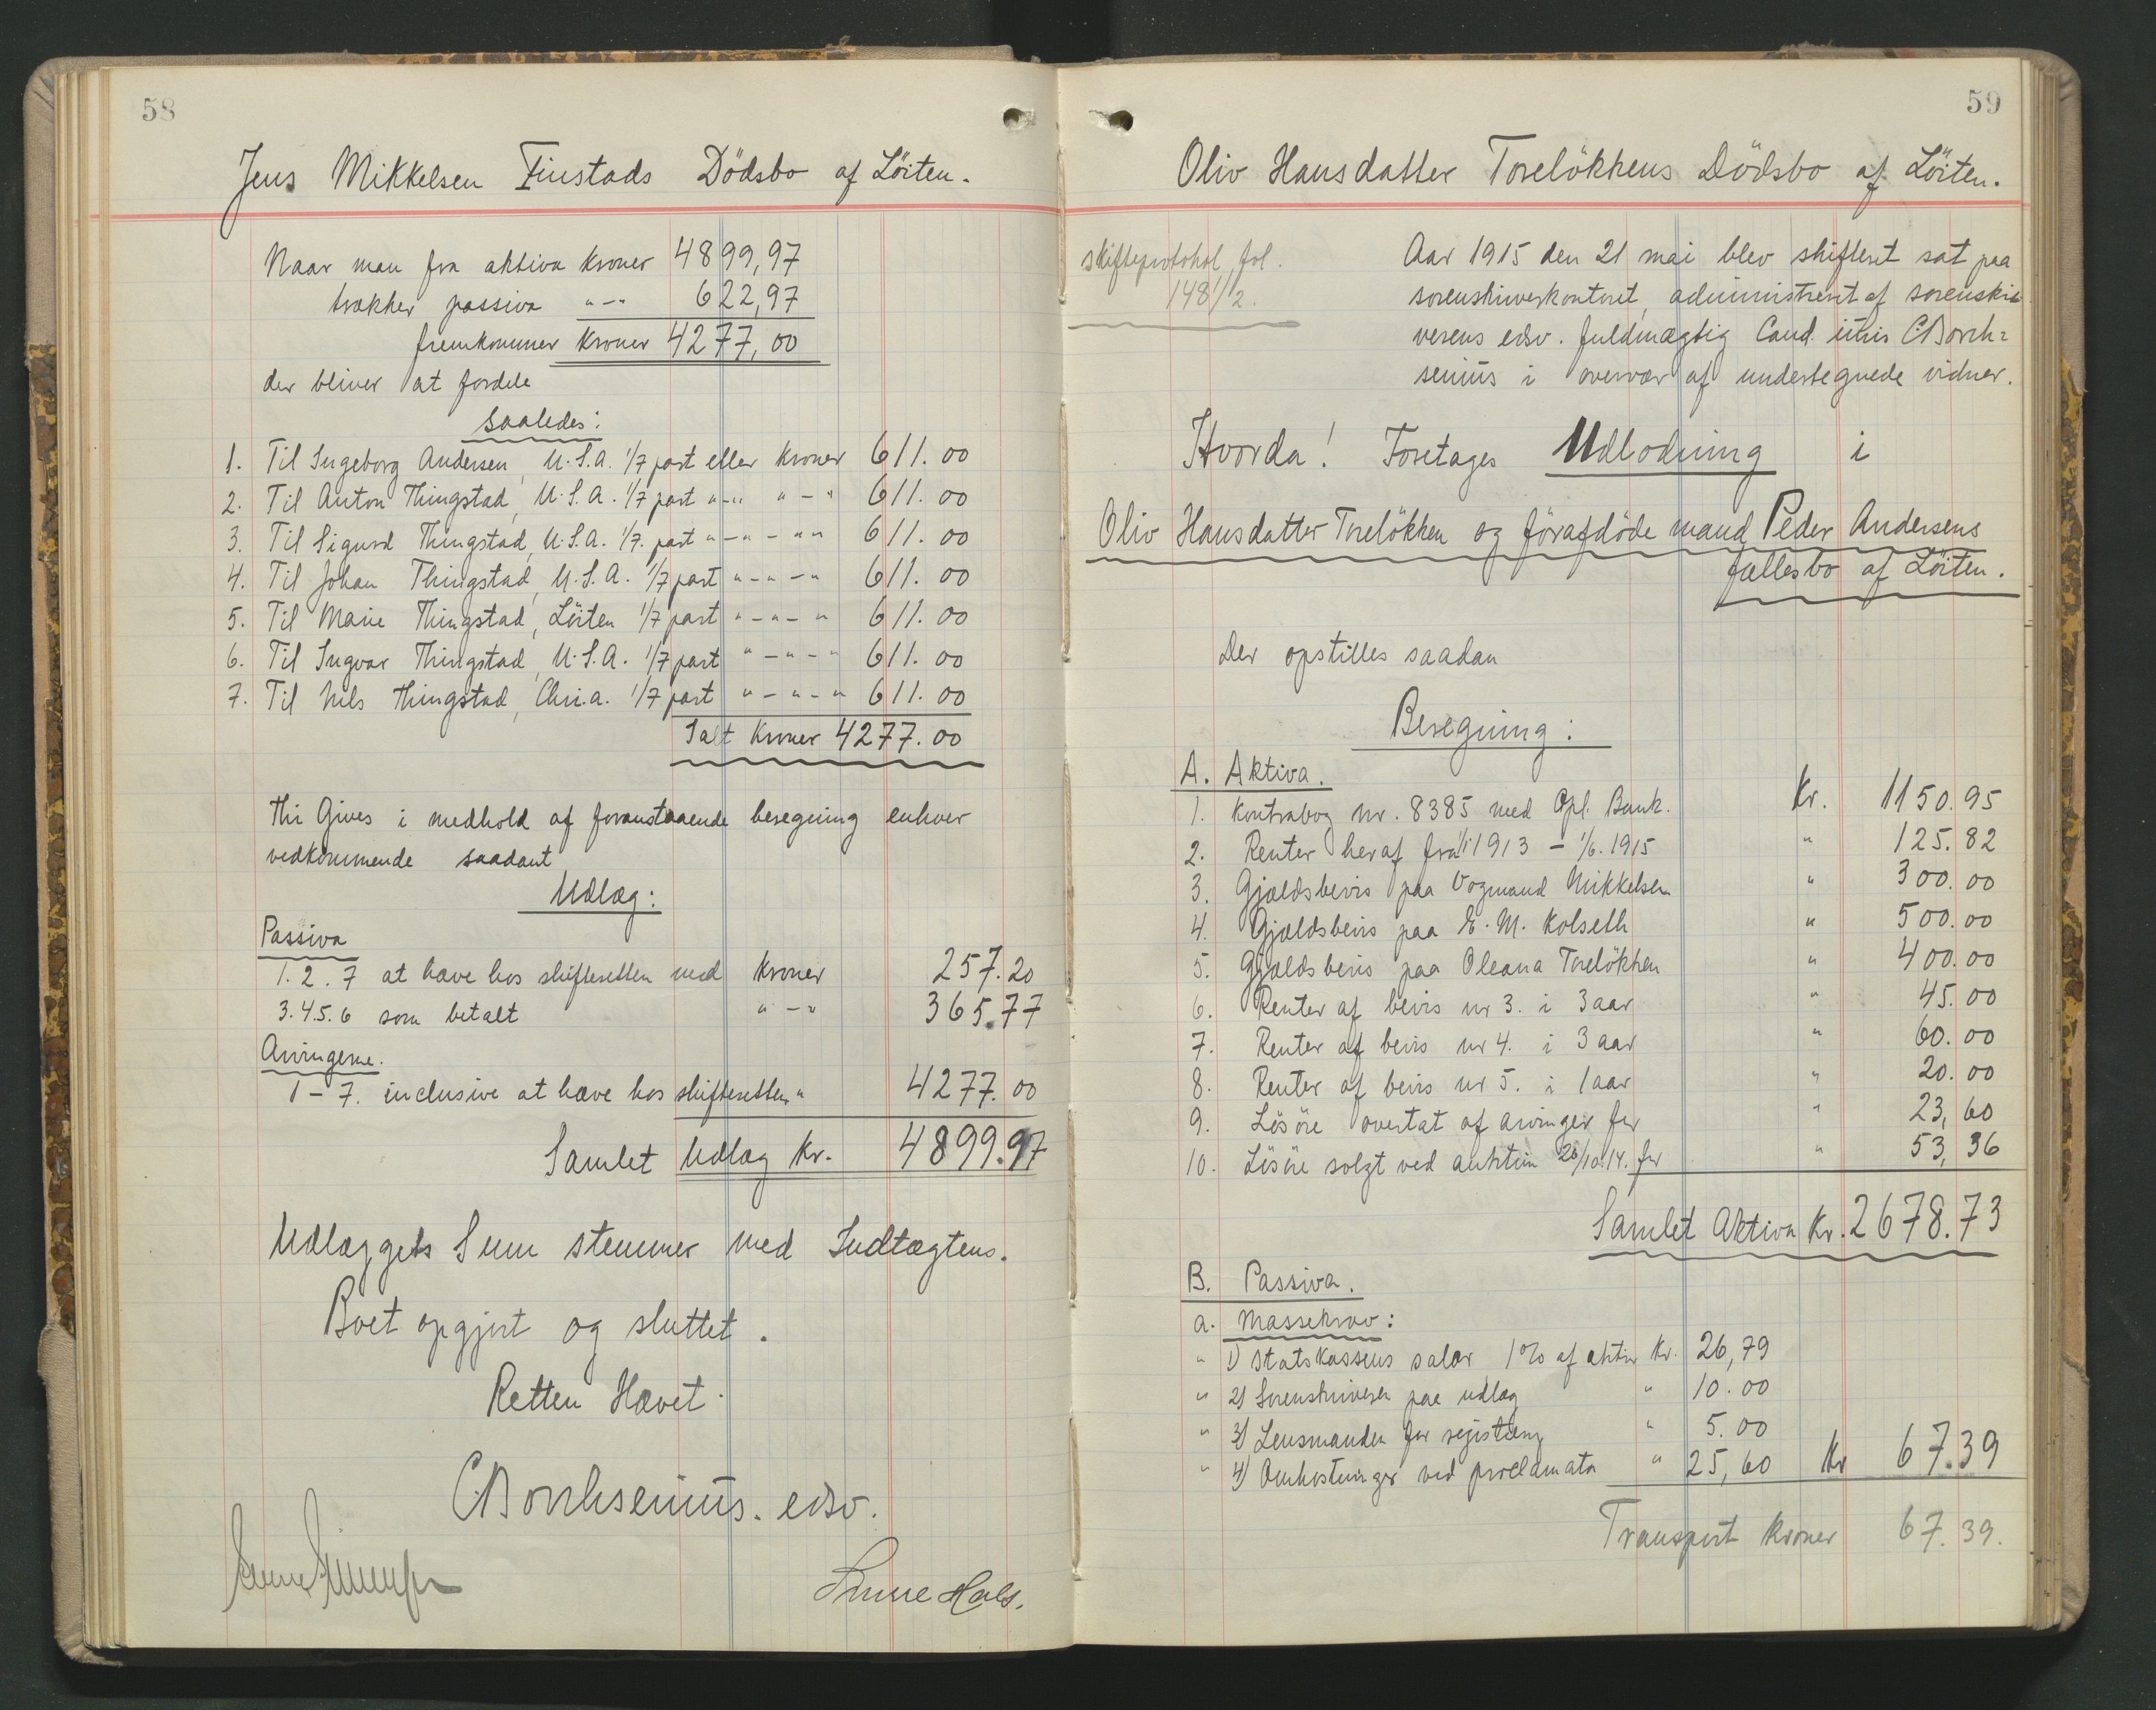 58
Jens Mikkelsen Finstads Dödsbo af Löiten.
Naar man fra aktiva kroner 4899,97
trækker passiva " - " 622,97
fremkommer kroner 4277,00
der bliver at fordele
saaledes:
1. Til Ingeborg Andersen, U.S.A. 1/7 part eller kroner 611.00
2. Til Anton Thingstad, U.S.A. 1/7 part " - " " - " 611.00
3. Til Sigurd Thingstad, U.S.A. 1/7. part " - " - " " 611.00
4. Til Johan Thingstad, U.S.A. 1/7 part " - " - " 611.00
5. Til Marie Thingstad, Löiten 1/7 part " - " - " 611.00
6. Til Ingvar Thingstad, U.S.A. 1/7 part " - " - " 611.00
7. Til Nils Thingstad, Chr.a. 1/7 part " - " - " 611.00
Ialt kroner 4277.00
Thi Gives i medhold af foranstaaende beregning enhver
vedkommende saadant
Udlæg:
Passiva
1. 2. 7 at hæve hos skifteretten med kroner 257.20
3.4.5.6 som betalt " - " 365.77
Arvingerne.
1 - 7. inclusive at hæve hos skifteretten " 4277.00
Samlet Udlæg Kr. 4899.97
Udlæggets Sum stemmer med Indtægtens.
Boet opgjort og sluttet.
Retten Hævet.
CBorchsenius. edsv.
Hals.
59
Oliv Hansdatter Torelökkens Dödsbo af Löiten.
skifteprotokol fol.
148 1/2.
Aar 1915 den 21 mai blev skifteret sat paa
sorenskriverkontoret, administreret af sorenskri
verens edsv. fuldmægtig Cand. jüris CBorch=
seniüs i overvær af undertegnede vidner.
Hvorda! Foretages Udlodning i
Oliv Hansdatter Torelökken og förafdöde mand Peder Andersens
fællesbo af Löiten.
Der opstilles saadan
Beregning:
A. Aktiva.
1. Kontrabog nr. 8385 med Opl. Bank. Kr. 1150.95
2. Renter heraf fra 1/1 1913 - 1/6. 1915 " 125.82
3. Gjældsbevis paa Vogmand Mikkelsen " 300.00
4. Gjældsbevis paa E. M. Kolseth " 500.00
5. Gjældsbevis paa Oleana Torelökken " 400.00
6. Renter af bevis nr 3. i 3 aar " 45.00
7. Renter af bevis nr 4. i 3 aar " 60.00
8. Renter af bevis nr 5. i 1 aar " 20.00
9. Lösöre overtat af arvinger for " 23,60
10. Lösöre solgt ved auktion 26/10.14. for " 53,36
Samlet Aktiva Kr. 2678.73
B. Passiva.
a. Massekrav:
" 1) Statskassens salær 1% af aktiva Kr. 26,79
" 2) Sorenskriveren paa udlæg " 10.00
" 3) Lensmanden for registrering " 5.00
" 4) Omkostninger ved proclamata " 25,60 Kr 67.39
Transport kroner 67.39.